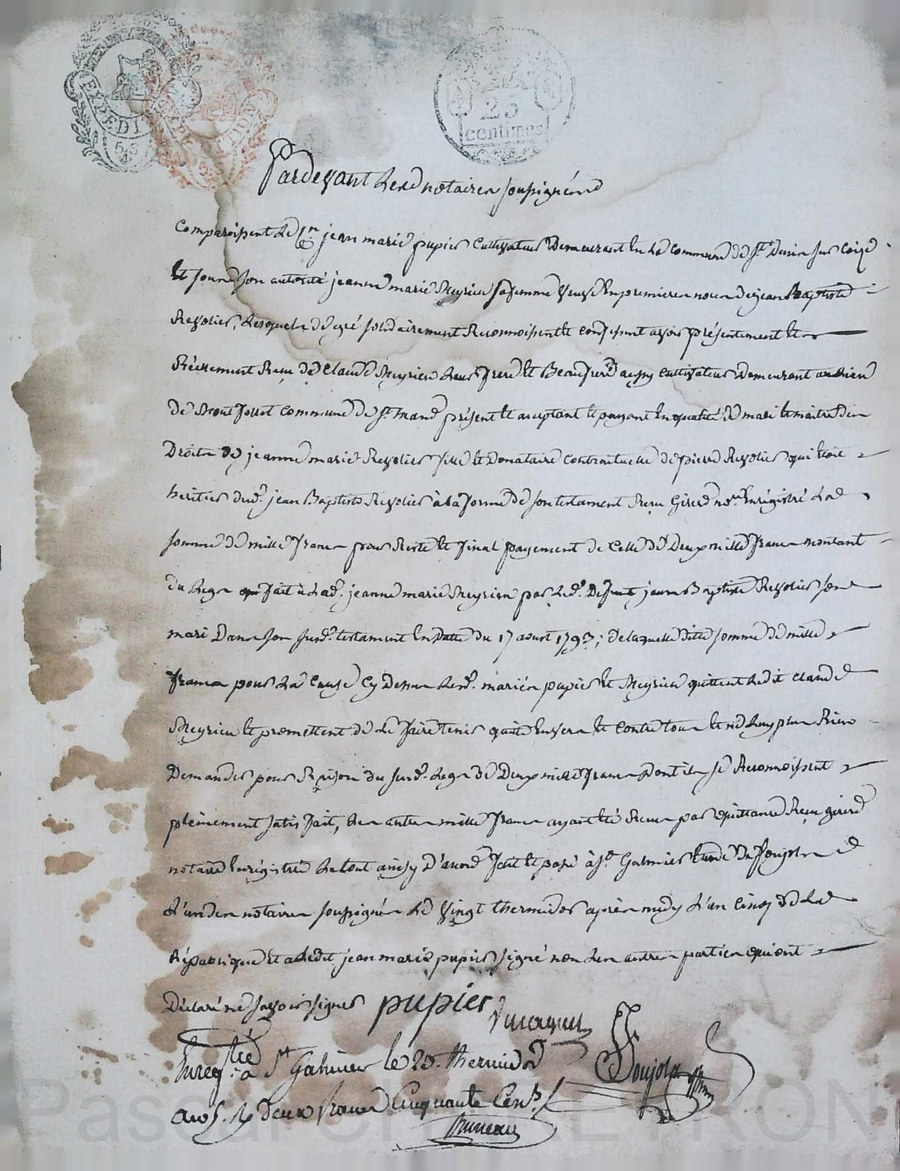 EXPEDITION
25
centimes
Pardevant les notaires soussignés
comparoissent le Cen jean marie pupier cultivateur demeurant en la commune de St Denis sur Coize
et sous son autorité jeanne marie Meyrieu sa femme veuve en premieres noces de jean Baptiste
lesquels de gré solidairement Reconnoissent et confessent avoir présentement et
Réellement Reçu de Claude Meyrieu leur frere et Beaufrere aussy cultivateur demeurant au lieu
de commune de St présent et acceptant et payant en qualité de mari et maitre des
Droits de jeanne marie fille et Donataire contractuelle de pierre qui étoit
heritier dud. jean Baptiste à la forme de son testament Reçu Girerd nore Enregistré la
somme de mille francs pour Reste et final payement de Celle de Deux mille francs montant
du legs fait à lad. jeanne marie Meyrieu par led. Defunt jean Baptiste son
mari Dans son susd. testament en date du 17 aoust 1793; de laquelle ditte somme de mille
francs pour la Cause Cy Dessus lesd. mariés pupier et Meyrieu quittent ledit claude
Meyrieu et promettent de le faire tenir quitte envers et contre tous et ne luy plus Rien
Demander pour Raison du susd. legs de Deux mille francs dont ils se Reconnoissent
pleinement satisfait, les autres mille francs ayant été Reçus par quittance Reçue girerd
notaire Enregistrée le tout ainsy d'accord fait et passé à St Galmier etude De
l'un des notaires soussignés le vingt thermidor après midy l'an cinq de la
République et a ledit jean marie pupier signé non les autres parties qui ont
Déclaré ne savoir signer pupier
Enregtré à St Galmier le 23 thermidor
an 5. Rç deux francs Cinquante Cens.
Bruneau
Pascal